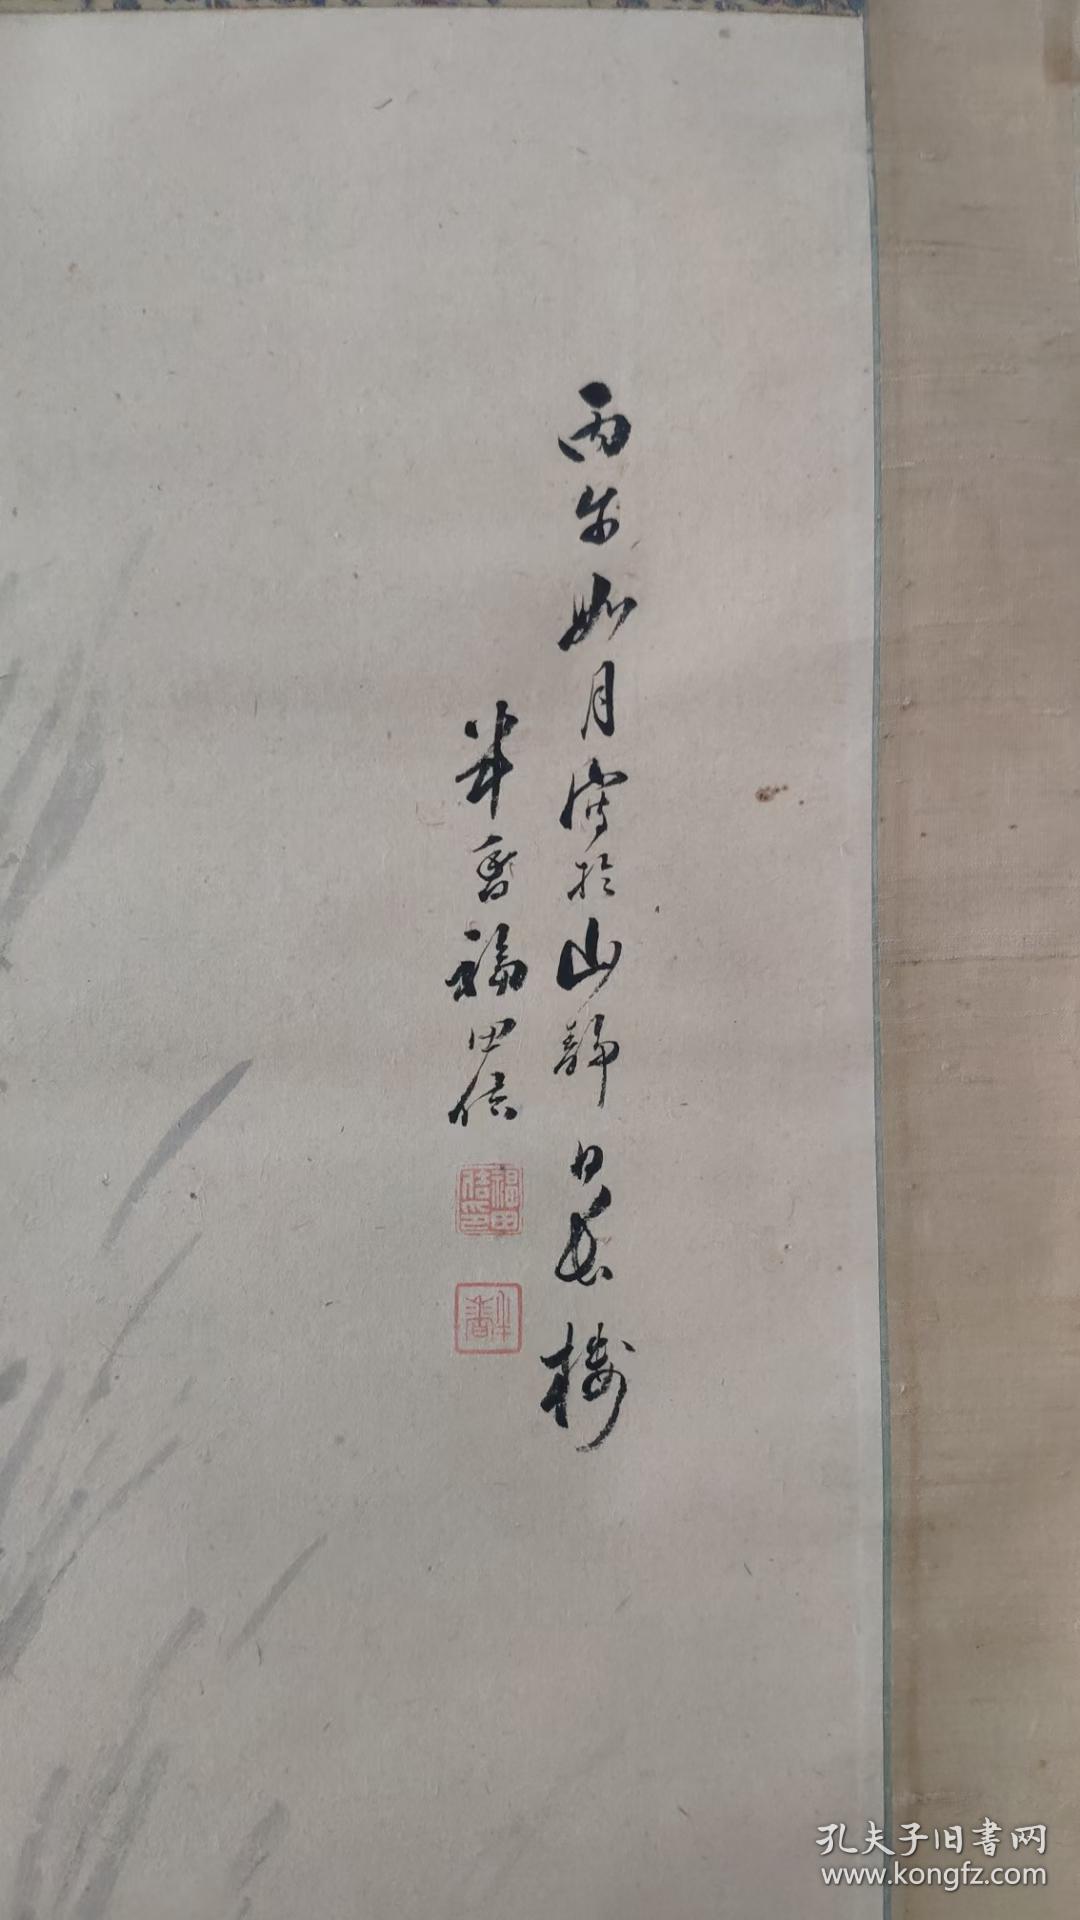 丙午如月寫於山静日長樓
半香福田佶
福田佶印
半香
孔夫子旧書网
www.kongfz.com